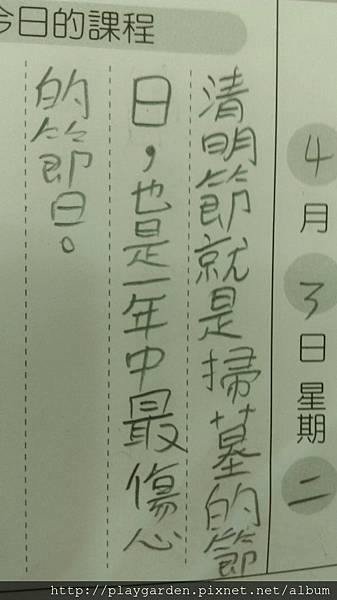 今日的課程
4月3日星期二
清明節就是掃墓的節
日，也是一年中最傷心
的節日。
http://playgarden.pixnet.net/album